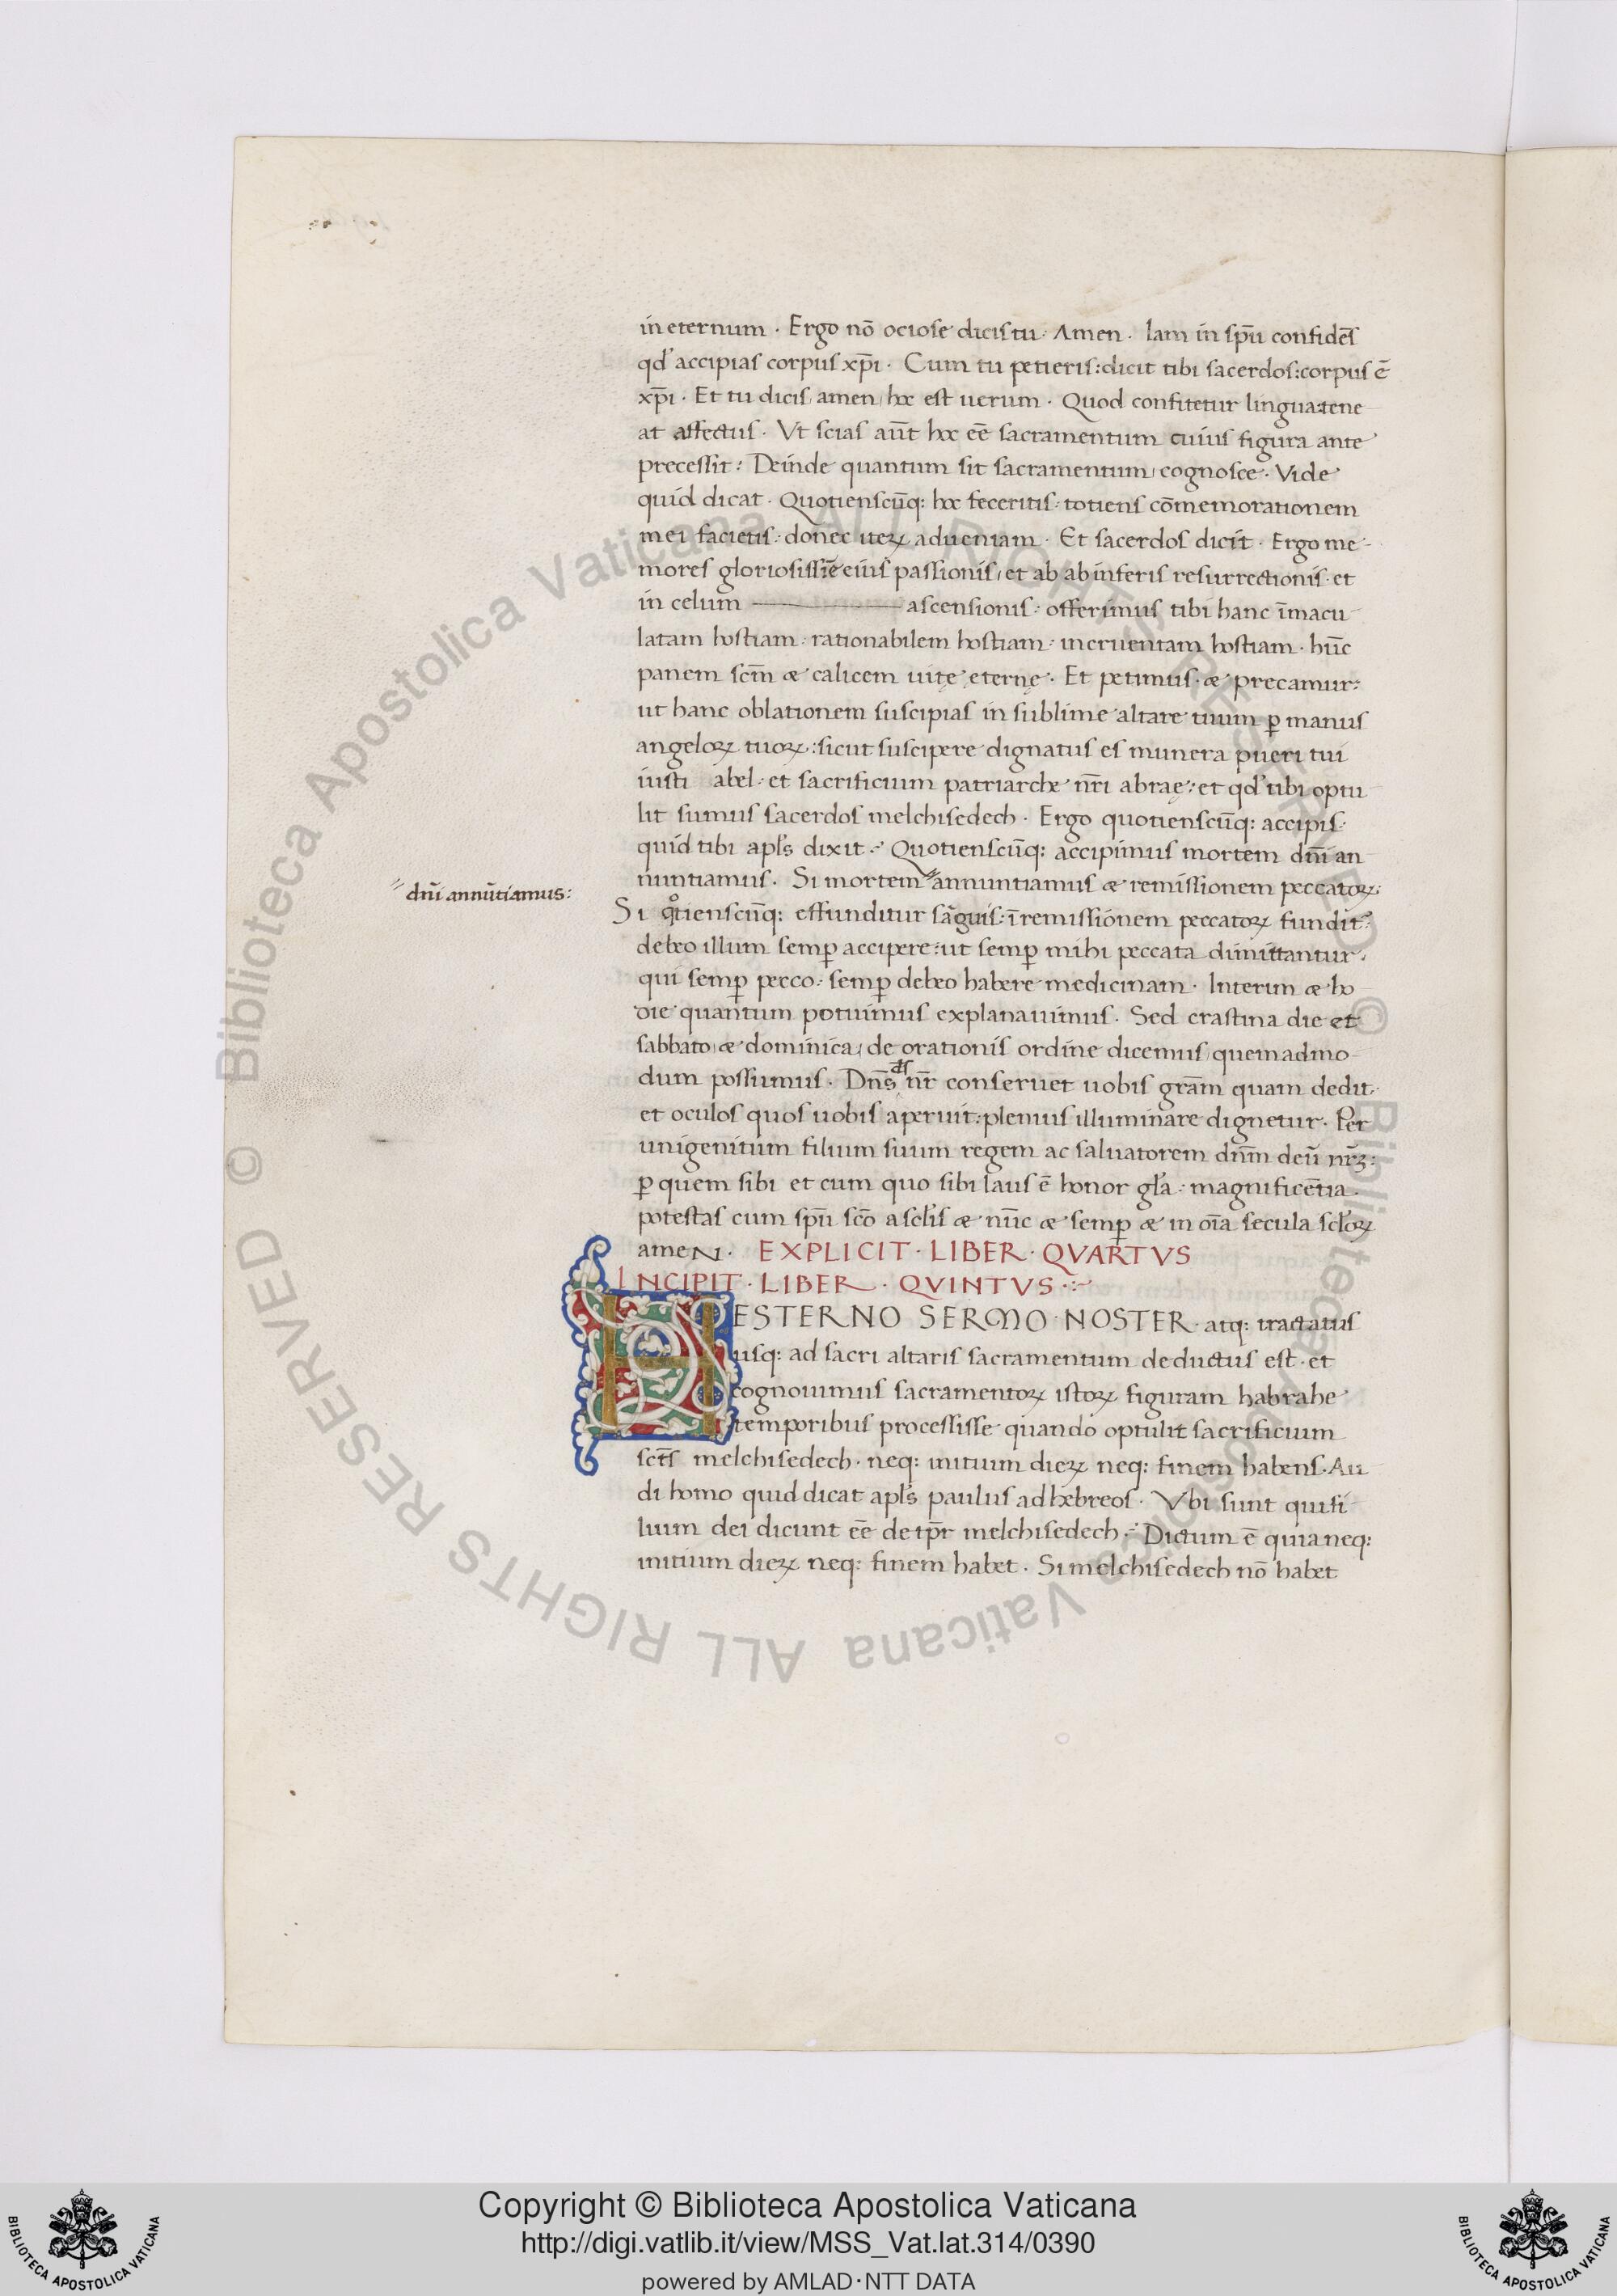 in eternum · Ergo nō ociose dicis tu : Amen · Iam in sp̄u confidēs
qđ accipias corpus xp̄i · Cum tu petieris : dicit tibi sacerdos : corpus ē
xp̄i · Et tu dicis amen, hoc est uerum · Quod confitetur lingua : tene
at affectus · Vt scias aūt hoc eē sacramentum cuius figura ante
precessit : Deinde quantum sit sacramentum, cognosce · Vide
quid dicat · Quotienscūq: hoc feceritis : totiens cōmemorationem
mei facietis : donec iteꝝ adueniam · Et sacerdos dicit · Ergo me-
mores gloriosissīe eius passionis, et ab ab inferis resurrectionis · et
in celum ——— ascensionis : offerimus tibi hanc īmacu
latam hostiam : rationabilem hostiam : incruentam hostiam · hūc
panem scm̄ & calicem uitę eternę · Et petimus · & precamur :
ut hanc oblationem suscipias in sublime altare tuum ꝑ manus
angeloꝝ tuoꝝ : sicut suscipere dignatus es munera pueri tui
iusti abel : et sacrificium patriarche nr̄i abraę : et qđ tibi optu
lit sumus sacerdos melchisedech · Ergo quotienscūq: accipis ·
quid tibi apl̄s dixit : Quotienscūq: accipimus mortem dn̄i an
nuntiamus · Si mortem " annuntiamus & remissionem peccatoꝝ :
" dn̄i annūtiamus :
Si qͦtienscūq: effunditur sāguis : ī remissionem peccatoꝝ fundit᷑
debeo illum semꝑ accipere : ut semꝑ mihi peccata dimittantur ·
qui semꝑ pecco : semꝑ debeo habere medicinam · Interim & ho
die quantum potuimus explanauimus · Sed crastina die et
sabbato & dominica, de orationis ordine dicemus quemadmo-
dum possumus · Dn̄s ds̄ nr̄ conseruet uobis grām quam dedit ·
et oculos quos uobis aperuit : plenius illuminare dignetur · Per
unigenitum filium suum regem ac saluatorem dn̄m deū nr̄ꝫ :
ꝑ quem sibi et cum quo sibi laus ē honor gl̄a : magnificētia ·
potestas cum sp̄u scō a scl̄is & nūc & semꝑ & in oīa secula scl̄oꝝ
ameN · EXPLICIT · LIBER · QVARTVS
INCIPIT · LIBER · QVINTVS · :~
HESTERNO SERMO NOSTER · atq: tractatus
usq: ad sacri altaris sacramentum deductus est · et
cognouimus sacramentoꝝ istoꝝ figuram habrahe
temporibus processisse quando optulit sacrificium
sct̄s melchisedech · neq: initium dieꝝ neq: finem habens · Au
di homo quid dicat apl̄s paulus ad hebreos · Vbi sunt qui fi
lium dei dicunt eē de tp̄r melchisedech · Dictum ē quia neq:
initium dieꝝ neq: finem habet · Si melchisedech nō habet
© Biblioteca Apostolica Vaticana ALL RIGHTS RESERVED
© Biblioteca Apostolica Vaticana ALL RIGHTS RESERVED
Copyright © Biblioteca Apostolica Vaticana
http://digi.vatlib.it/view/MSS_Vat.lat.314/0390
powered by AMLAD·NTT DATA
BIBLIOTECA APOSTOLICA VATICANA
BIBLIOTECA APOSTOLICA VATICANA